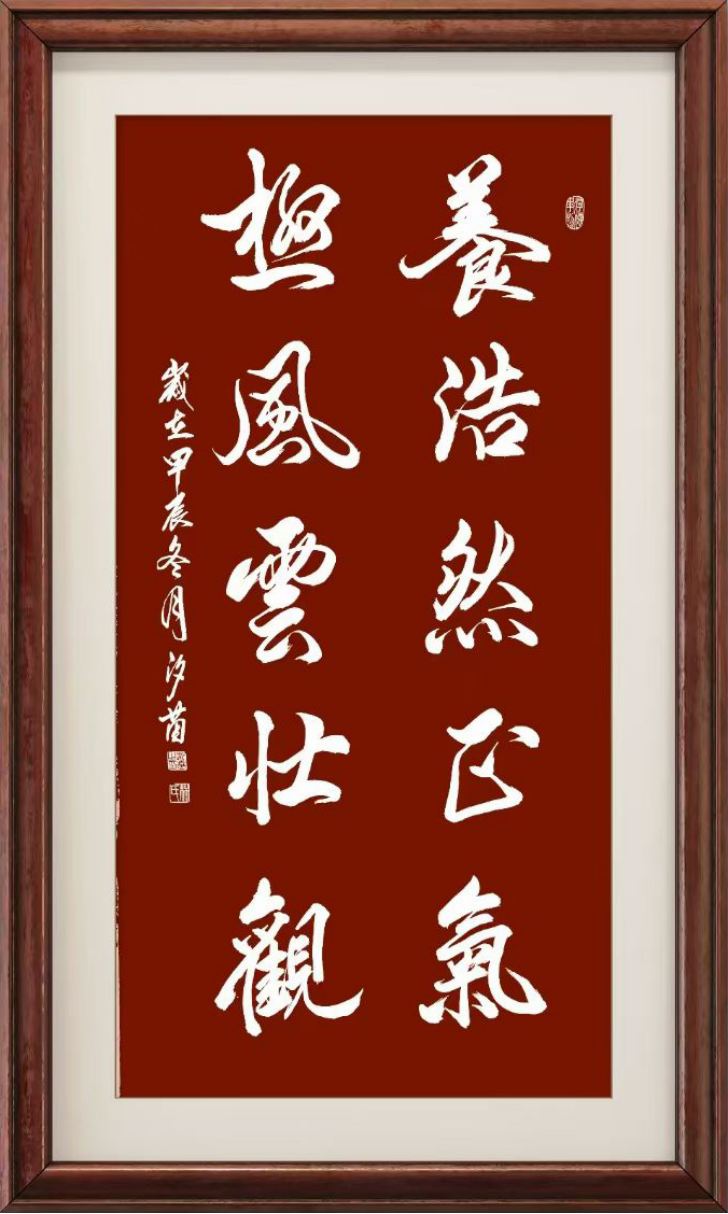 養浩然正氣
極風雲壯觀
歲在甲辰冬月汐茵